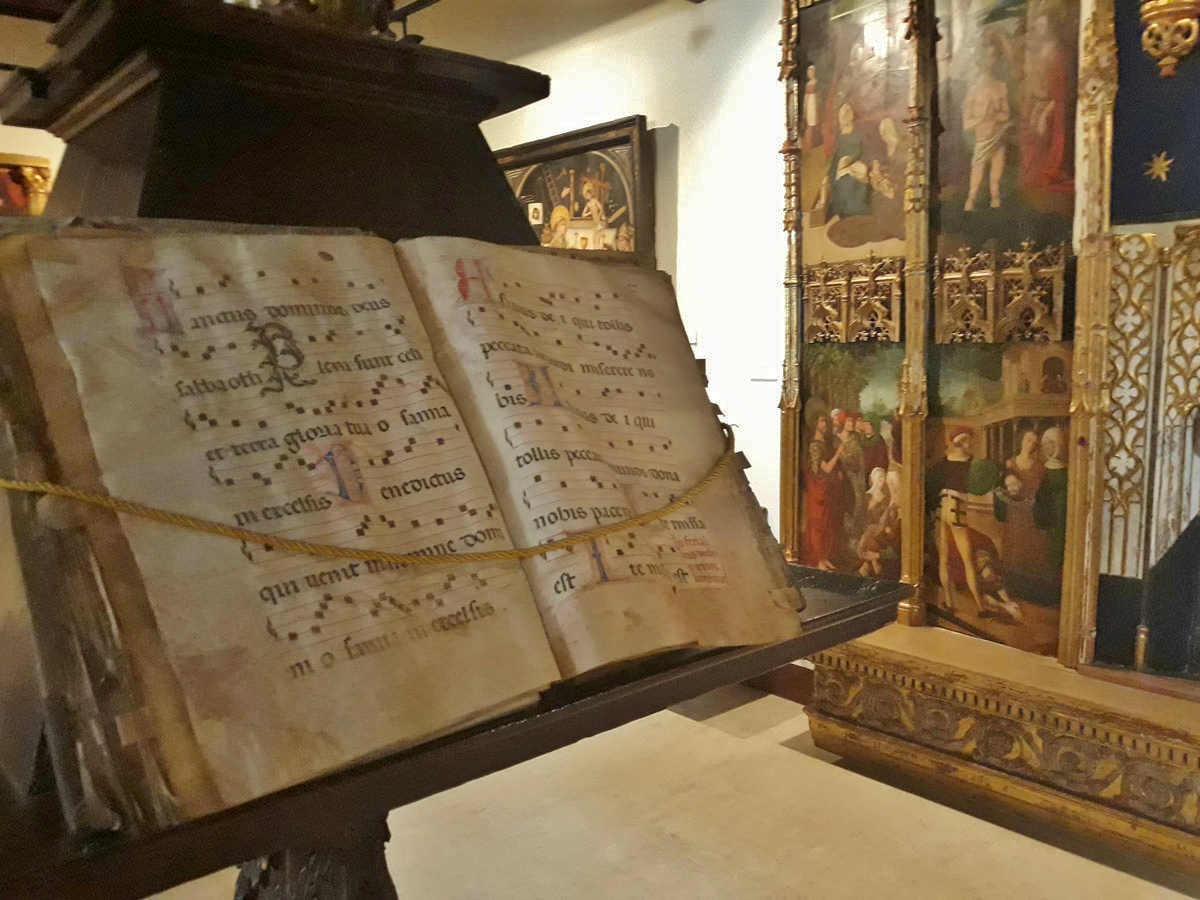 Sanctus dominus deus
sabbaoth Pleni sunt celi
et terra gloria tua o sanna
in excelsis Benedictus
qui uenit in nomine domi
ni o sanna in excelsis
Agnus de i qui tollis
peccata mundi miserere no
bis Agnus de i qui
tollis peccata mundi dona
nobis pacem te missa
est Ite missa est